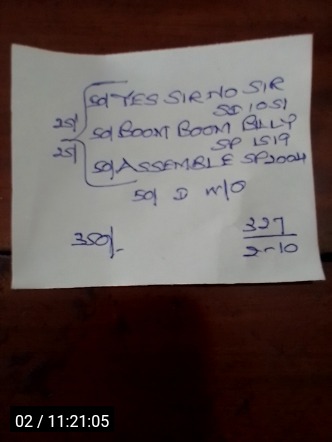 50/ YES SIR NO SIR
SP 1051
25/ 50/ BOOM BOOM BILLY
SP 1519
25/ 50/ ASSEMBLE SP2004
50/ D W/O
350/-
327
2-10
02 / 11:21:05